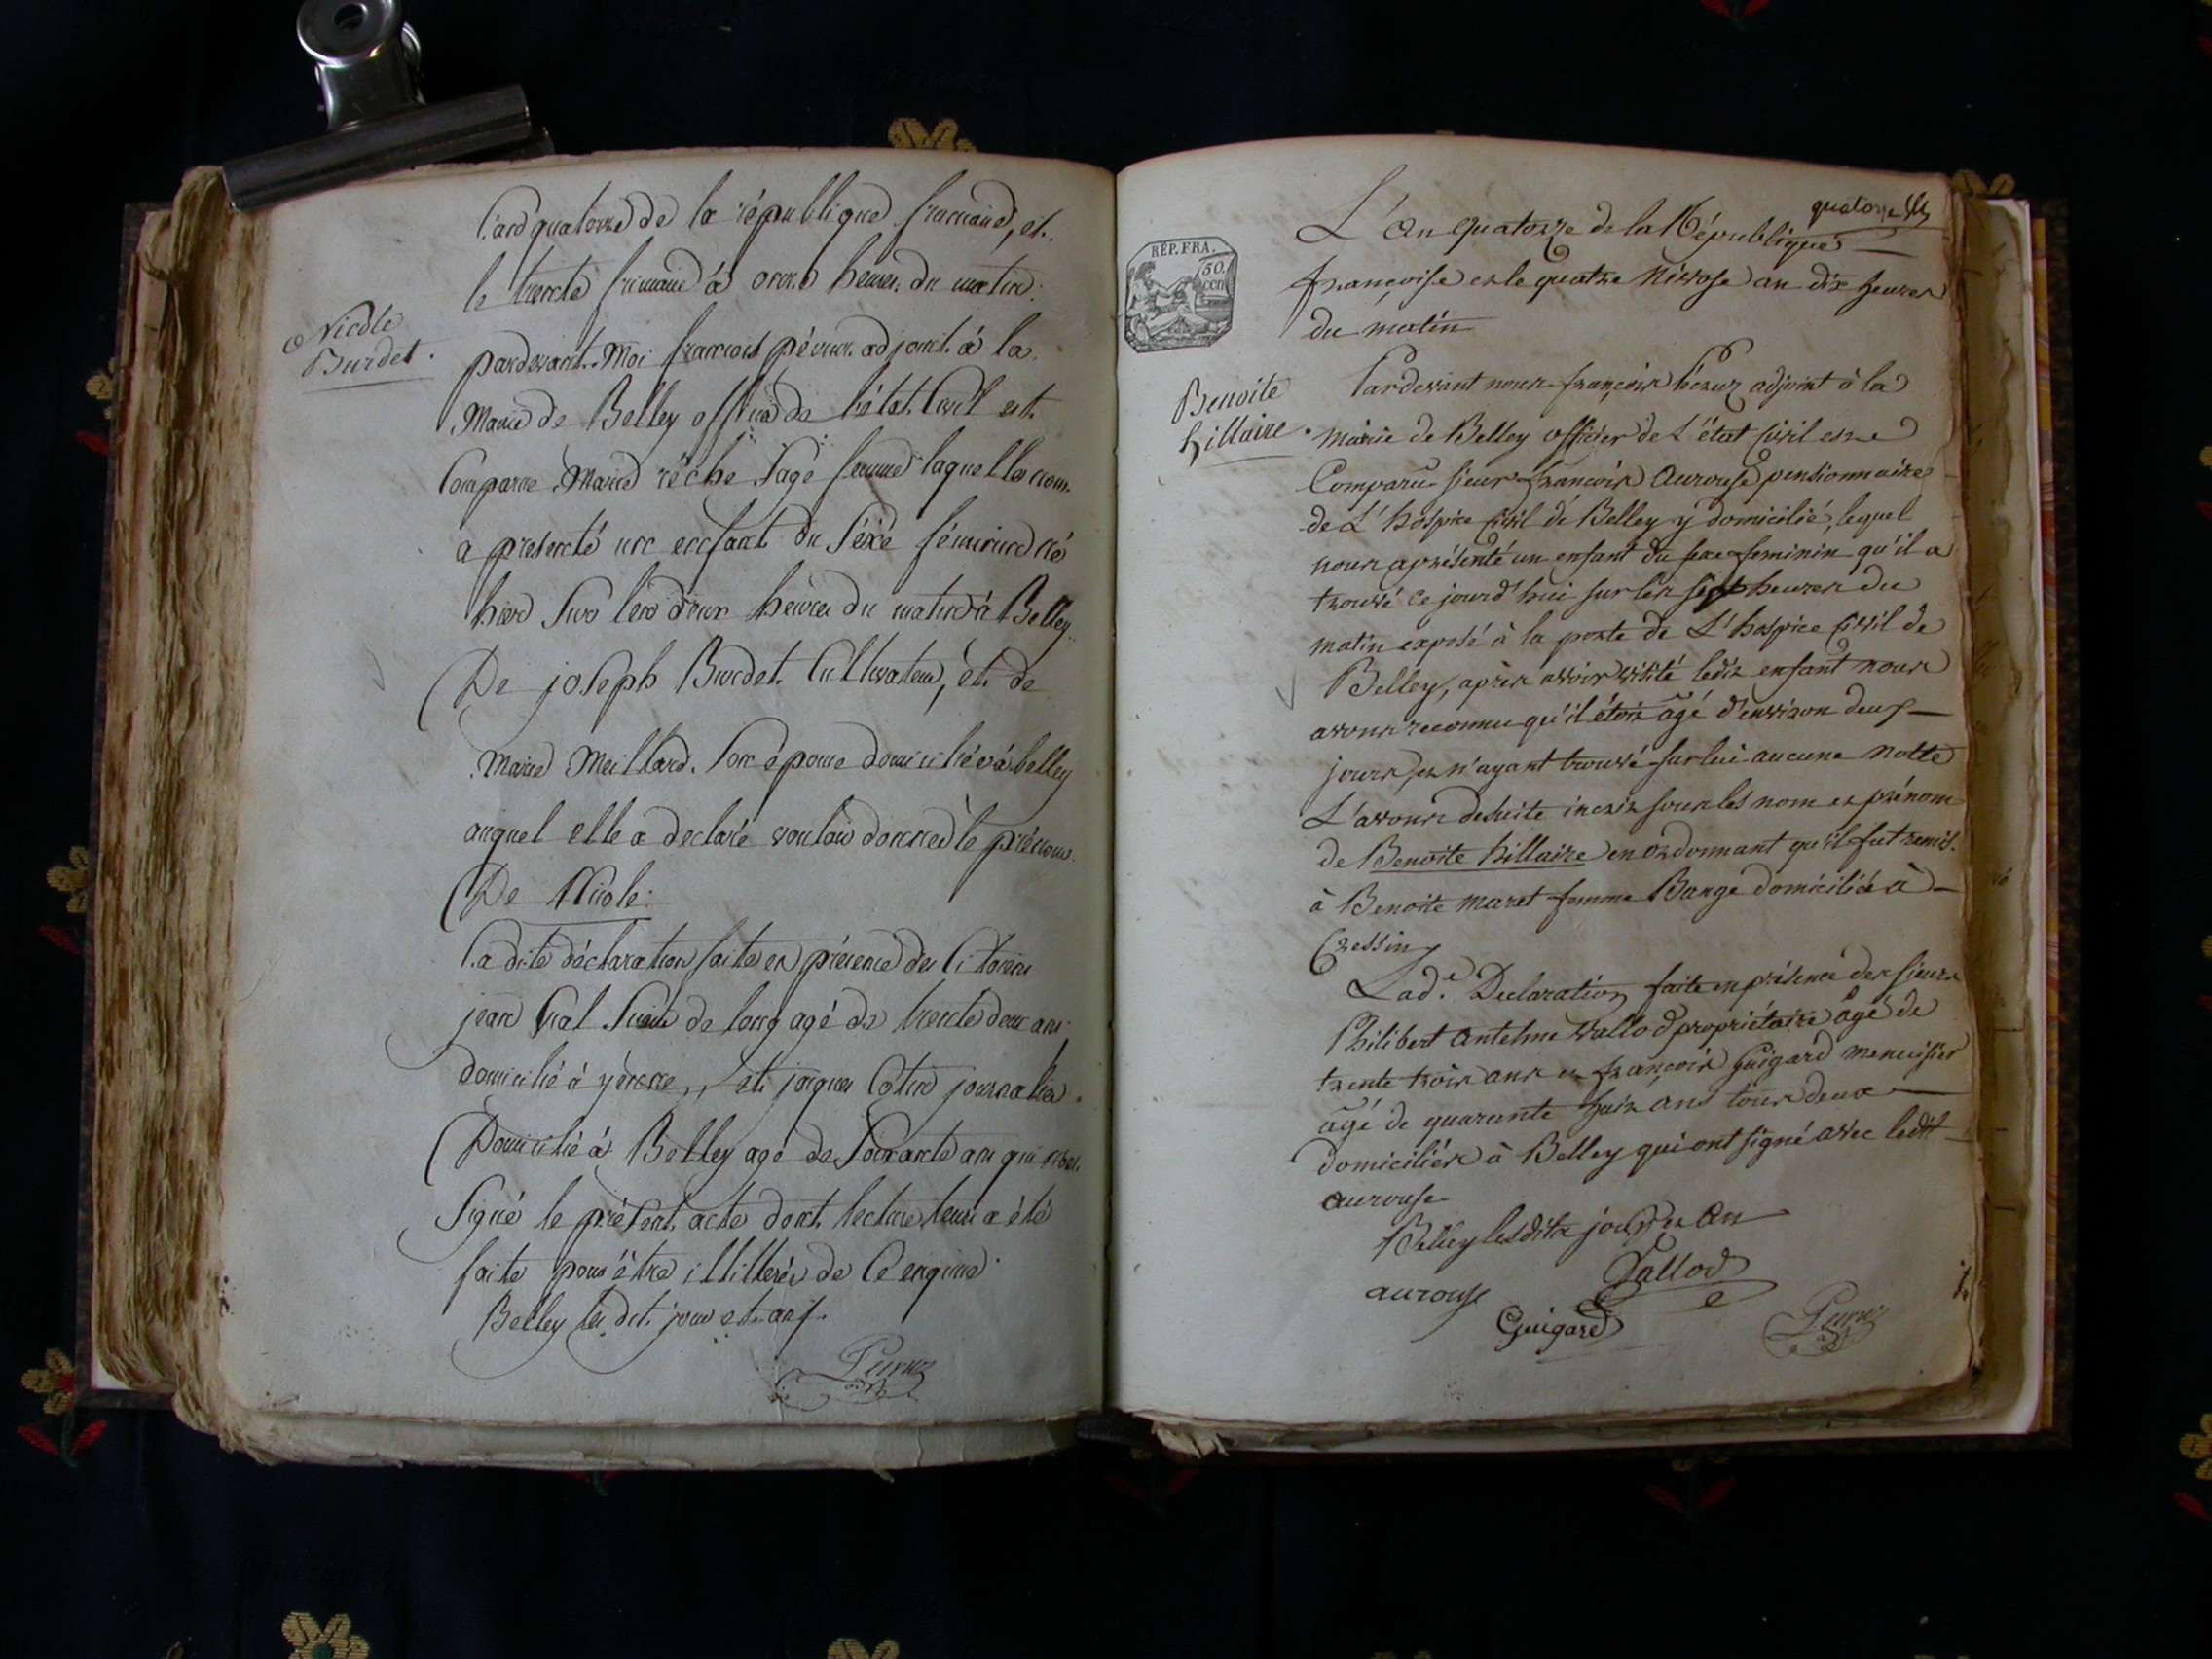 Nicole
Burdet.
L'an quatorze de la république francaise, et
le trente frimaire à onze heures du matin
pardevant Moi francois péruz adjoint à la
Mairie de Belley officier de l'état Civil est
Comparue Marie réche Sage femme laquelle nous
a présenté un enfant du Séxe féminin né
hier Sur les deux heures du matin à Belley
De joseph Burdet Cultivateur, et de
Marie Meillard Son épouse domiciliés à belley
auquel elle a déclaré vouloir donner le prénom
De Nicole.
La dite déclaration faite en présence des Citoiens
jean de long agé de trente deux ans
domicilié à yenne, et jacques Cotin journalier
Domicilié à Belley agé de Soixante ans qui n'ont
Signé le présent acte dont lecture leur a été
faite pour être illitterés de Ce enquis
Belley les dit jour et an
Peruz
quatorze
RÉP. FRA.
50.
cen
L'an quatorze de la République
françoise et le quatre Nivose an dix heures
du matin
Benoite
hillaire.
Pardevant nous françois Péruz adjoint à la
mairie de Belley officier de L'état Civil est
Comparu sieur françois Aurouse pensionnaire
de L'hospice Civil de Belley y domicilié, lequel
nous a présenté un enfant du sexe feminin qu'il a
trouvé ce jourd'hui sur les sept heures du
matin exposé à la porte de L'hospice Civil de
Belley, après avoir visité ledit enfant nous
avons reconnu qu'il étoit âgé d'environ deux
jours, et n'ayant trouvé sur lui aucune notte
L'avons desuite inscrit sous les nom et prénom
de Benoite hillaire en ordonnant qu'il fut remis
à Benoite maret femme Bange domiciliée à
Cressin
Lad.e Declaration faite en présence des sieurs
Philibert Antelme Vallod propriétaire âgé de
trente trois ans et françois Guigard menuisier
âgé de quarante huit ans tous deux
domiciliés à Belley qui ont signé avec ledit
aurouse
Belley lesdits jour et an
Vallod
aurouse
Guigard
Peruz